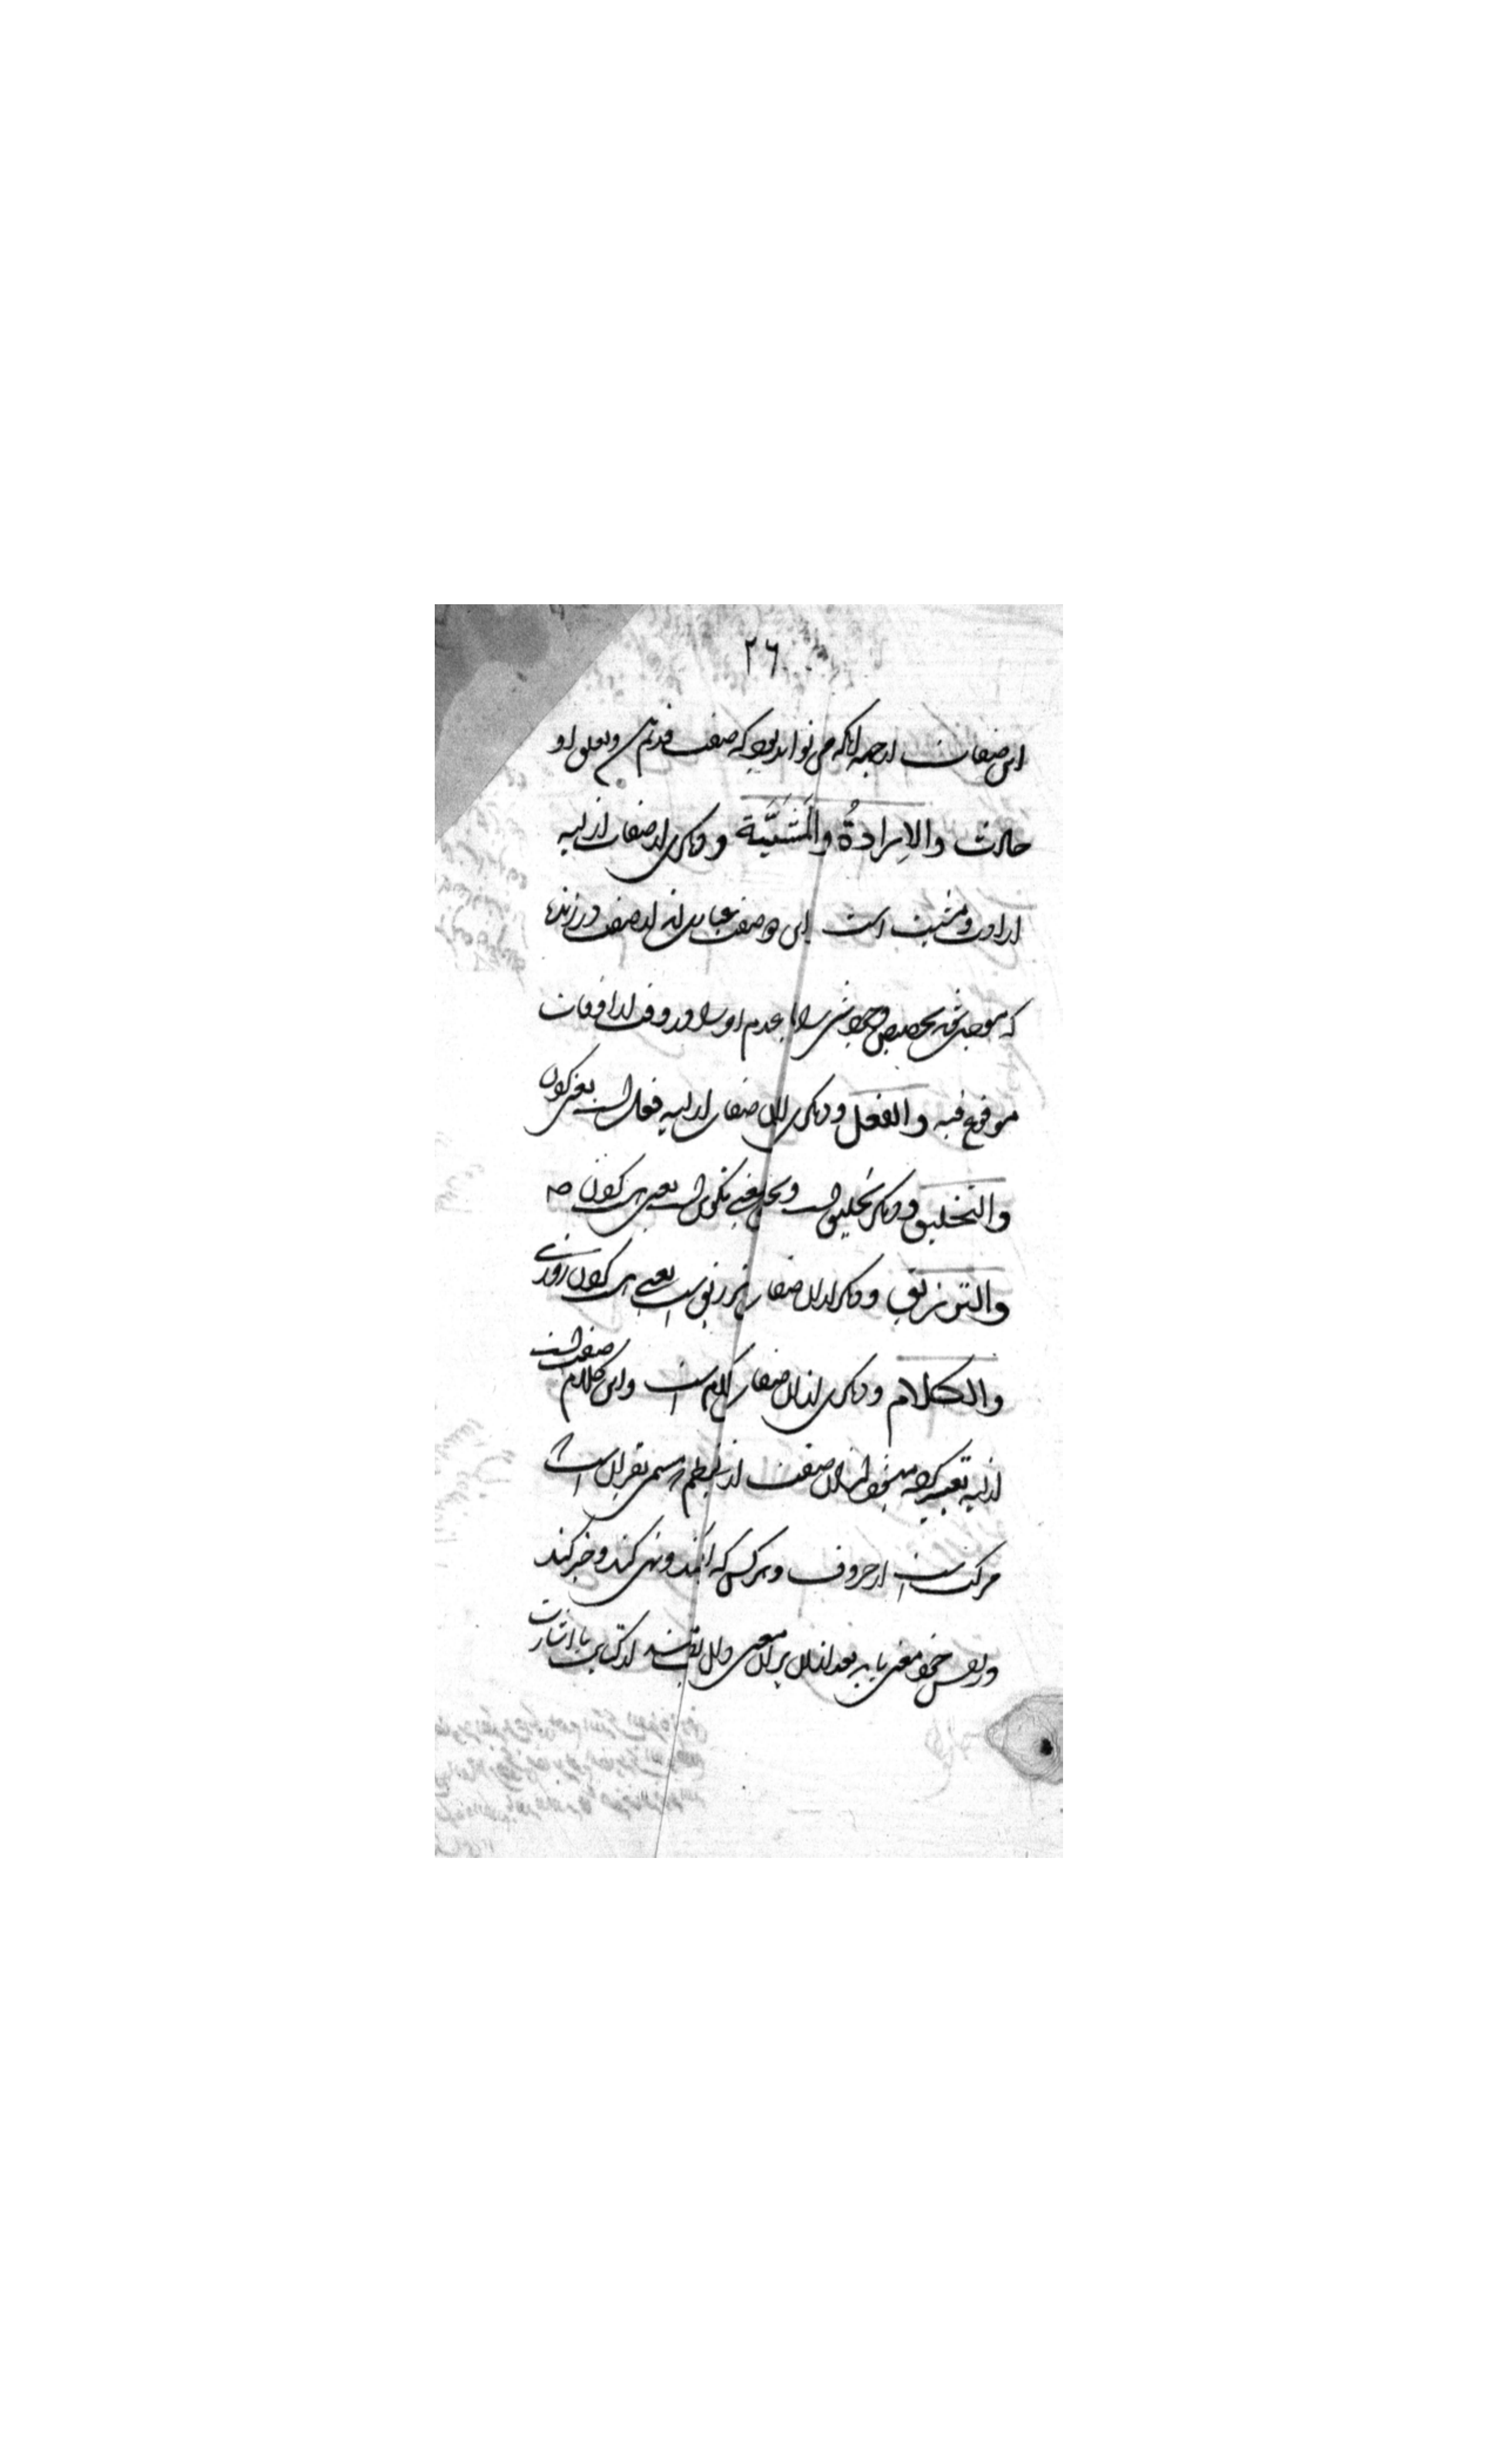 ۲۶
این صفات از جهه آنکه می تواند بود که صفت قدیم و تعلق او
حادث والإرادةُ والمَشَيَّة و دیگری از صفات ازلیه
ارادت و مشیت است این دو صفت عبارت اند از صفت در زنده
که موجب تخصیص وجود شی را یا عدم او را در وقت از اوقات
موقوع فیه والفعل و دیگری از آن صفات ازلیه فعل است یعنی کردن
والتخلیق و دیگر تخلیق است و تخلیق بمعنی تکوین است یعنی هست کردن
والترزیق و دیگر از آن صفات ترزیق است یعنی کردن روزی
والکلام و دیگری از آن صفات کلام است و این کلام صفت است
ازلیه تعبیر کرده میشود از آن صفت از نظم مسمی بقرآن است
مرکب است از حروف و هر کس که امر کند و نهی کند و خبر کند
در نفس خود معنی یابد بعد از آن بر آن معنی دلالت کند از کتابت یا اشارت